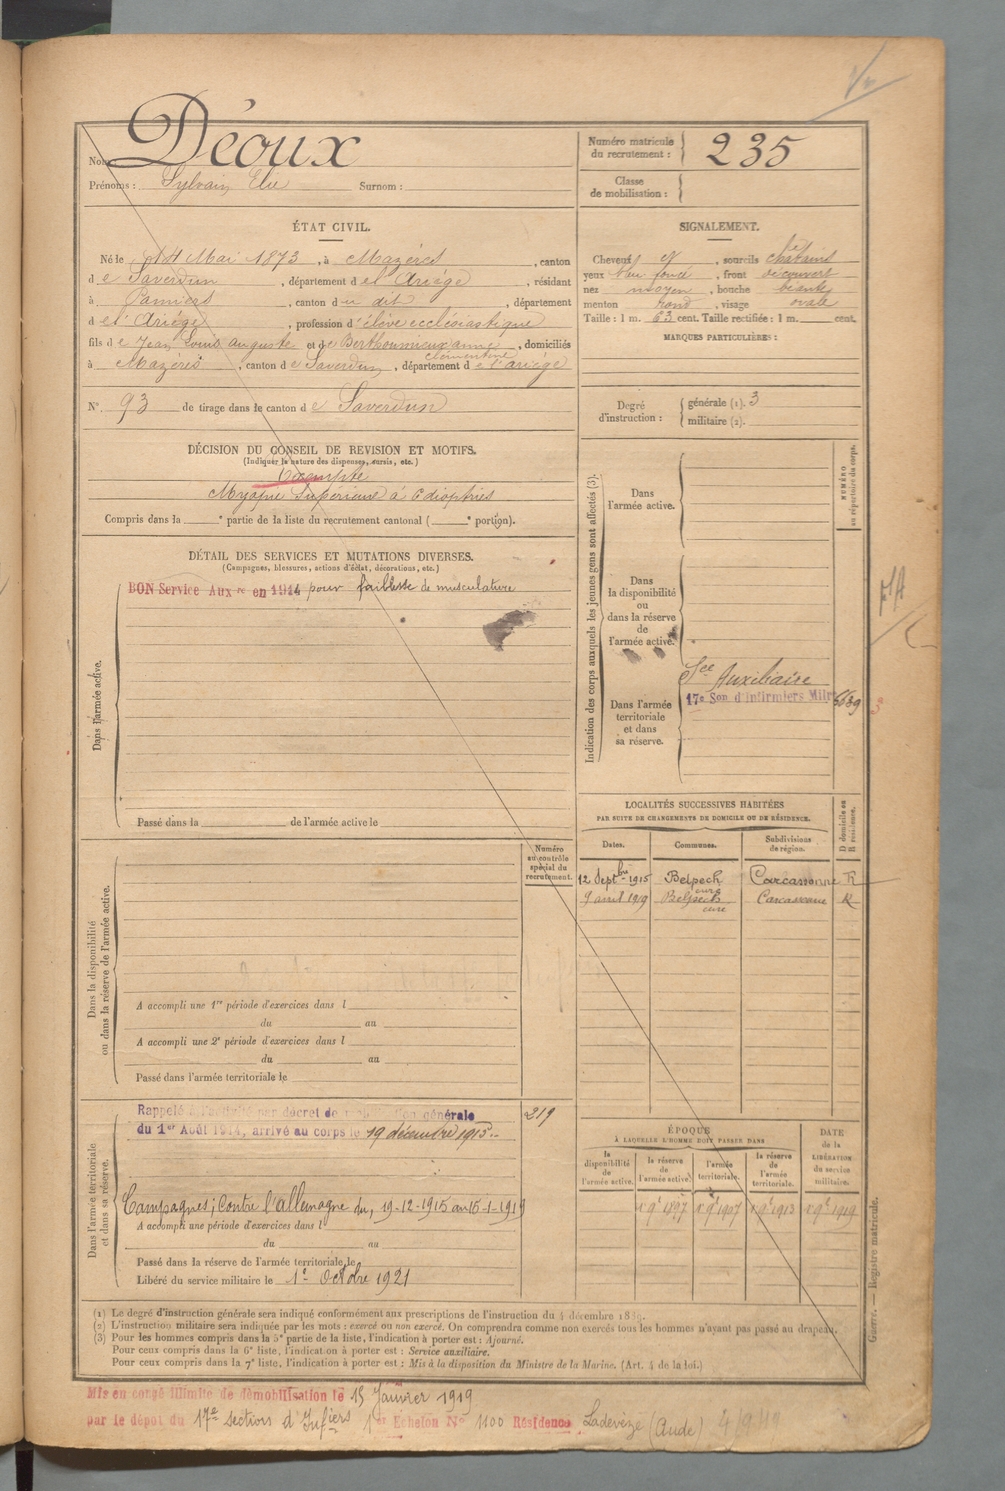 Nom Déoux
Prénoms : Sylvain Elie Surnom :
Numéro matricule du recrutement : 235
Classe de mobilisation :
ÉTAT CIVIL.
Né le 14 Mai 1873, à Mazères, canton
de Saverdun, département de l'Ariège, résidant
à Pamiers, canton du dit, département
de l'Ariège, profession d'élève ecclésiastique
fils de Jean Louis Auguste et de Berthoumieux anne clémentine, domiciliés
à Mazérès, canton de Saverdun, département de l'ariège
N° 93 de tirage dans le canton de Saverdun
SIGNALEMENT.
Cheveux et, sourcils châtains
yeux bleu foncé, front découvert
nez moyen, bouche béante
menton rond, visage ovale
Taille : 1 m. 63 cent. Taille rectifiée : 1 m. cent.
MARQUES PARTICULIÈRES :
Degré d'instruction : générale (1). 3
militaire (2).
DÉCISION DU CONSEIL DE REVISION ET MOTIFS.
(Indiquer la nature des dispenses, sursis, etc.)
Exempté
Myopie Supérieure à 6 dioptries
Compris dans la e partie de la liste du recrutement cantonal ( e portion).
DÉTAIL DES SERVICES ET MUTATIONS DIVERSES.
(Campagnes, blessures, actions d'éclat, décorations, etc.)
Dans l'armée active.
BON Service Aux re en 1914 pour faiblesse de musculature
Passé dans la de l'armée active le
Indication des corps auxquels les jeunes gens sont affectés (3).
NUMÉRO au répertoire du corps.
Dans l'armée active.
Dans la disponibilité ou dans la réserve de l'armée active.
Dans l'armée territoriale et dans sa réserve.
Sce Auxiliaire
17e Son d'Infirmiers Milres
LOCALITÉS SUCCESSIVES HABITÉES
PAR SUITE DE CHANGEMENTS DE DOMICILE OU DE RÉSIDENCE.
Dates. Communes. Subdivisions de région. D domicile ou R résidence.
12 Septbre 1915 Belpech curé Carcassonne R
9 avril 1919 Belpech curé Carcassonne R
Numéro au contrôle spécial du recrutement.
Dans la disponibilité ou dans la réserve de l'armée active.
A accompli une 1re période d'exercices dans l
du au
A accompli une 2e période d'exercices dans l
du au
Passé dans l'armée territoriale le
Dans l'armée territoriale et dans sa réserve.
Rappelé à l'activité par décret de mobilisation générale
du 1er Août 1914, arrivé au corps le 19 décembre 1915.
219
Campagnes; Contre l'allemagne du, 19-12-1915 au 15-1-1919
A accompli une période d'exercices dans l
du au
Passé dans la réserve de l'armée territoriale le
Libéré du service militaire le 1er Octobre 1921
ÉPOQUE
À LAQUELLE L'HOMME DOIT PASSER DANS
la disponibilité de l'armée active. la réserve de l'armée active. l'armée territoriale. la réserve de l'armée territoriale. DATE de la LIBÉRATION du service militaire.
1 9e 1897 1 9e 1907 1 9e 1913 1 9e 1919
(1) Le degré d'instruction générale sera indiqué conformément aux prescriptions de l'instruction du 4 décembre 1889.
(2) L'instruction militaire sera indiquée par les mots : exercé ou non exercé. On comprendra comme non exercés tous les hommes n'ayant pas passé au drapeau.
(3) Pour les hommes compris dans la 5e partie de la liste, l'indication à porter est : Ajourné.
Pour ceux compris dans la 6e liste, l'indication à porter est : Service auxiliaire.
Pour ceux compris dans la 7e liste, l'indication à porter est : Mis à la disposition du Ministre de la Marine. (Art. 4 de la loi.)
Guerre. — Registre matricule.
Mis en congé illimité de démobilisation le 15 Janvier 1919
par le dépôt du 17e section d'Infiers 1er Echelon N° 1100 Résidence Ladevèze (Aude)